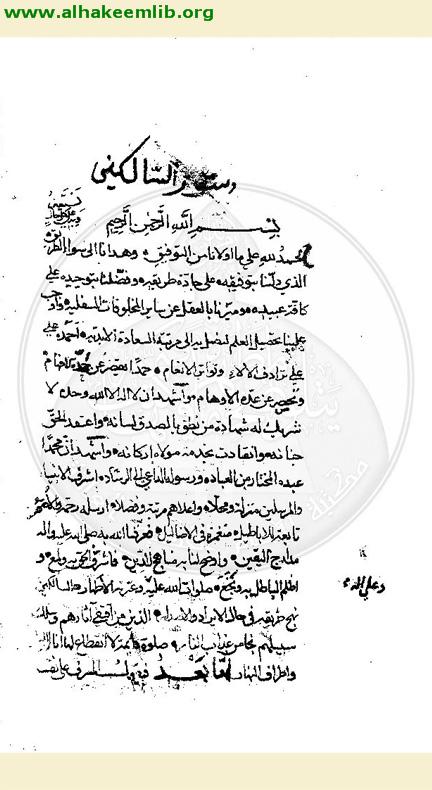 www.alhakeemlib.org
دستور السالكين
بسم الله الرحمن الرحيم
الحمد لله على ما اولانا من التوفيق وهدانا الى سواء الطريق
الذي دلنا بتوفيقه على جادة طريقه وفضلنا بتوحيده على
كافة عبيده وميزنا بالعقل عن ساير المخلوقات السفلية واوجب
علينا تحصيل العلم لنصل به الى مرتبة السعادة الابدية احمده على
على ترادف الالاء وتواتر الانعام حمدا يقصر عن
عن عده الاوهام واشهد ان لا اله الا الله وحده لا
شريك له شهادة من نطق بالصدق لسانه واعتقد الحق
جنانه وانقادت بخدمة مولاه اركانه واشهد ان محمدا
عبده المختار من العباد ورسوله الداعي الى الرشاد اشرف الانبياء
والمرسلين منزلة ومحلا واعلاهم مرتبة وفضلا ارسله رحمة
تابعة للاباطيل منغمرة في الاضاليل فعرفنا الله به صلى الله عليه واله
مناهج اليقين واوضح لنا به مناهج الدين فاشرق الحق به ولمع و
اظلم الباطل به صلوات الله عليه وعترته الاطهار السالكين
نهج طريقه في حالة الايراد والاصدار الذين من اقتفى اثارهم وسلك
سبيلهم نجا من عذاب النار صلوة دائمة لا انقطاع لها اناء الليل
واطراف النهار اما بعد